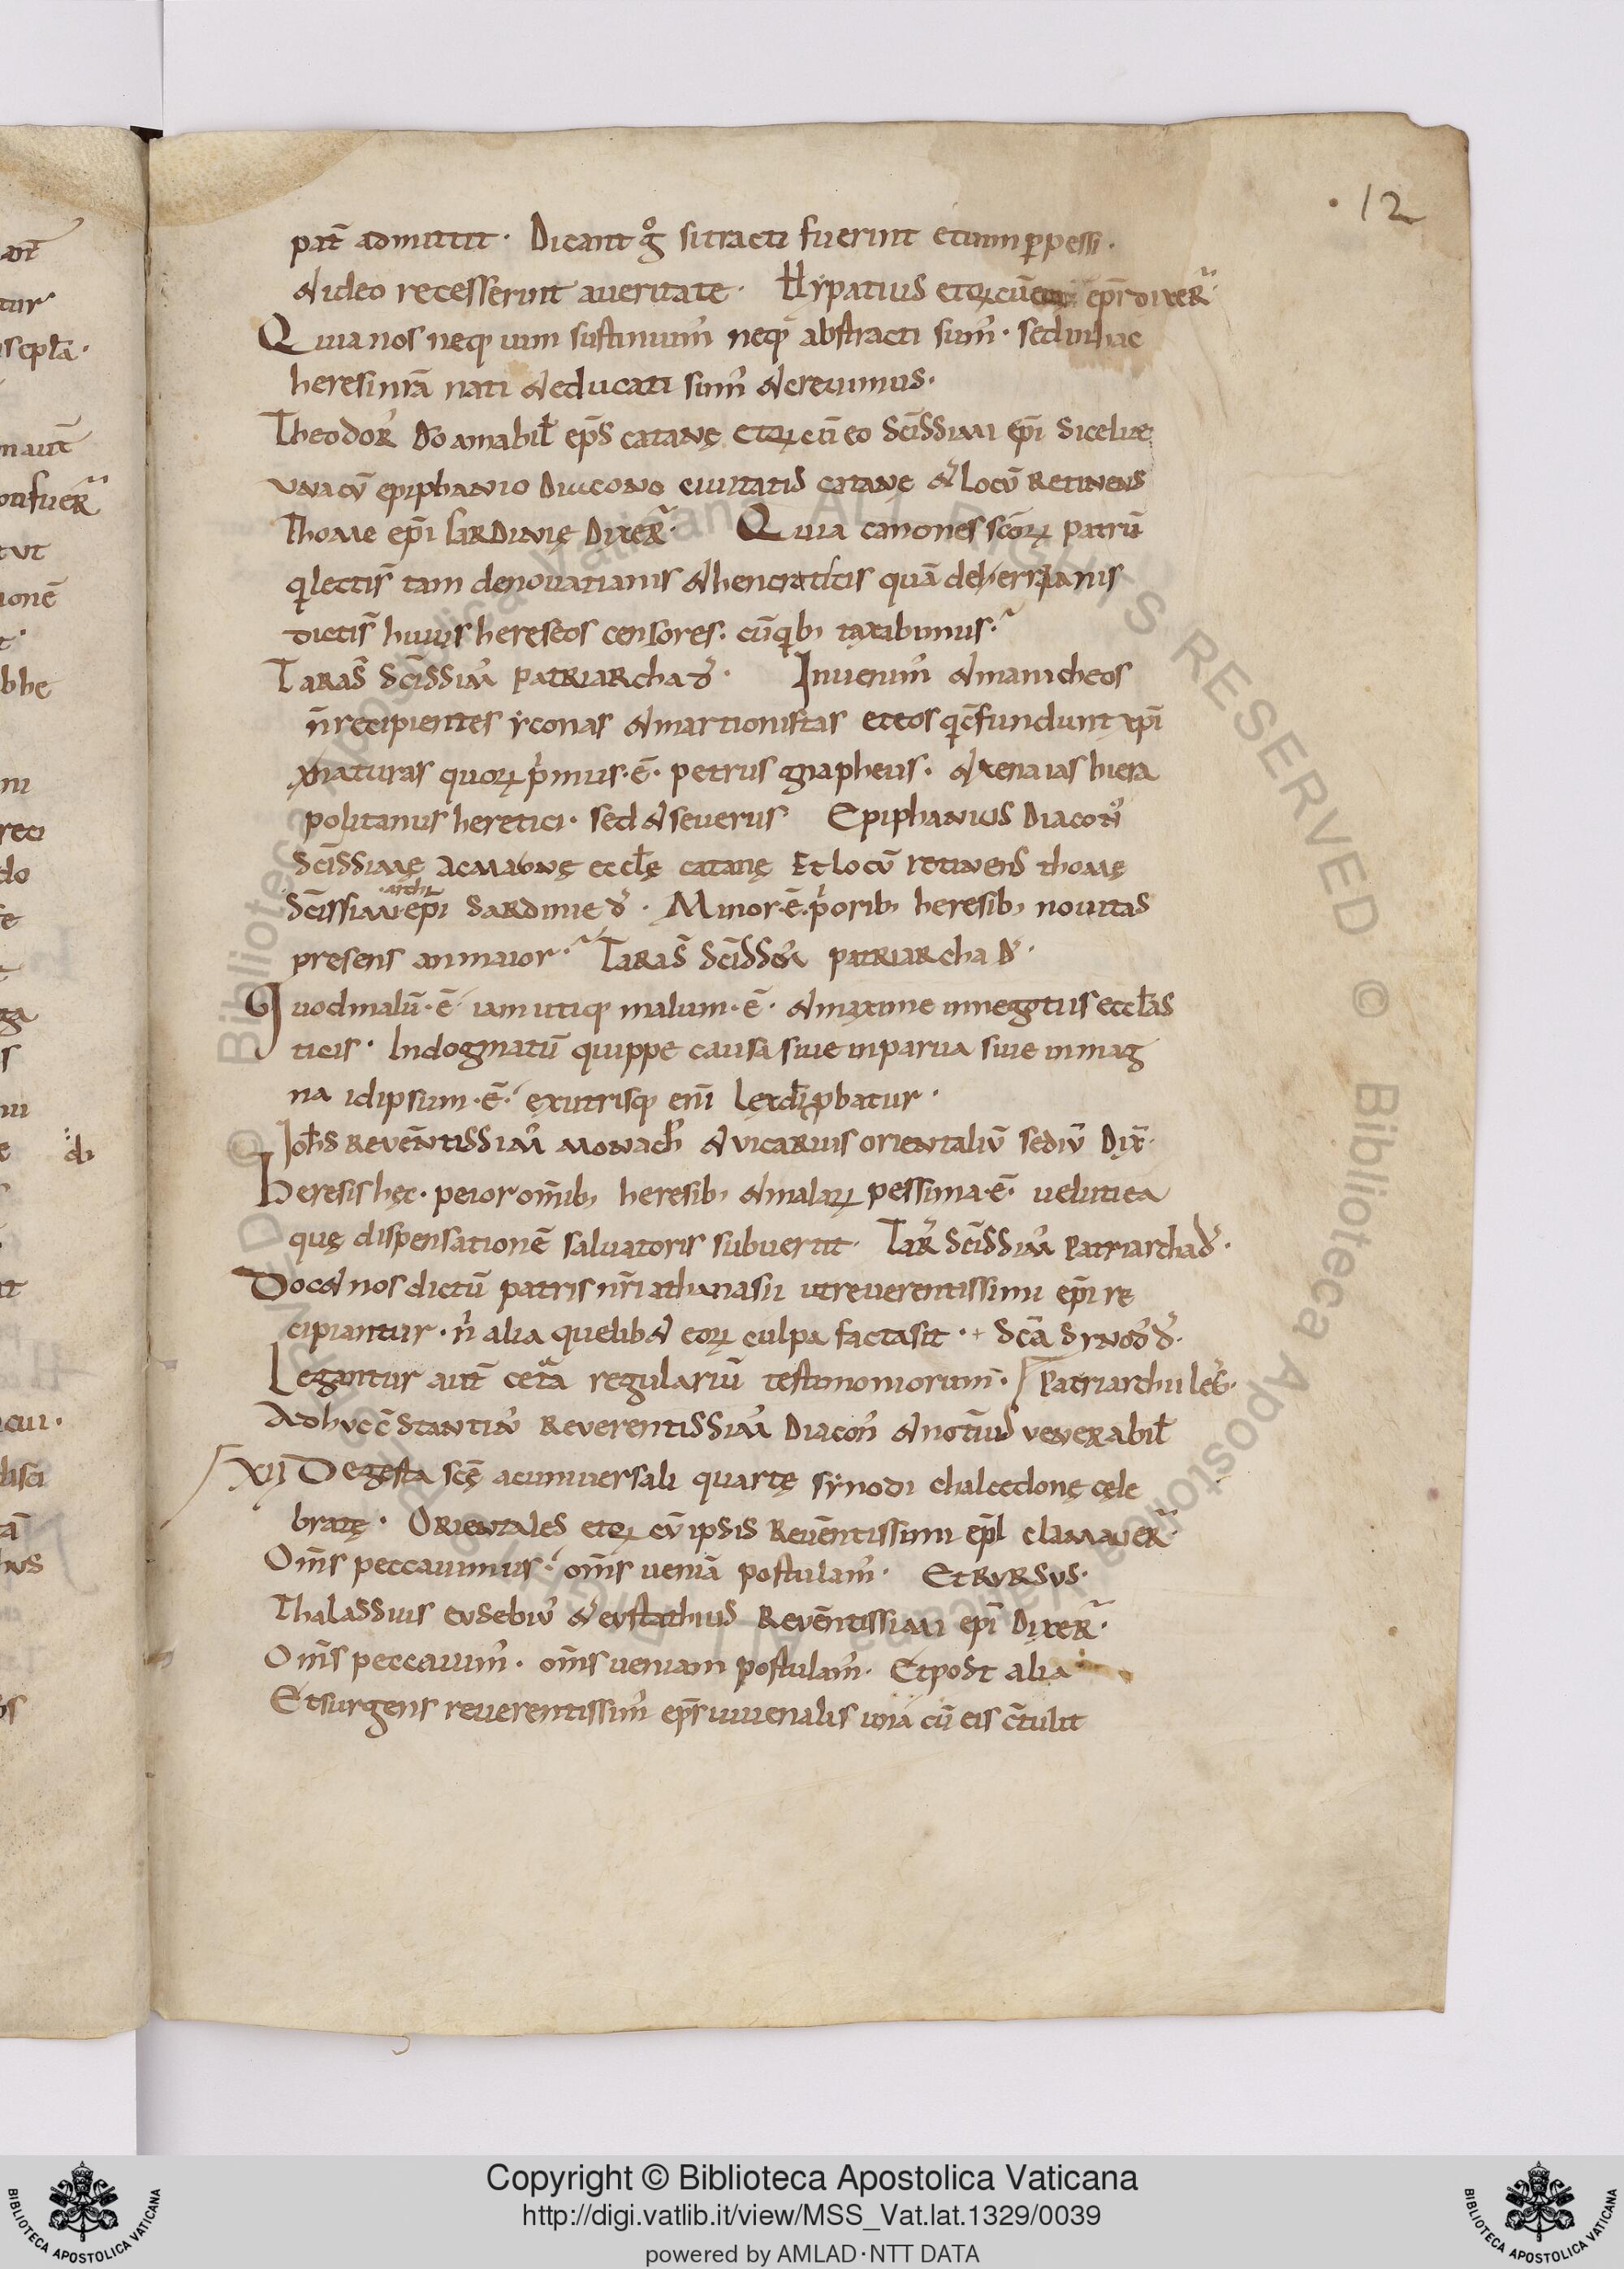 ·12
pat̄ admittit· Dicant g̊ si tracti fuerint et uim ꝑpessi·
& ideo recesserint a ueritate· Hẏpatius et q̄ cū eo epī dixeR̄·
Quia nos neq; uim sustinuim' neq; abstracti sum'· sed in hac
heresi nrā nati & educati sum' & creuimus·
Theodor' do amabil' ep̄s catanę et q̄ cū eo sc̄issimi epī siceliae
una cū epiphanio diacono ciuitatis catanę & locū retinens
Thome epī sardinię dixeR̄· Quia canones sc̄orꝝ patrū
q̄ lecti s̄ tam de nouatianis & hencratitis quā de herrianis
dicti s̄ huius hereseos censores· cū q'b; taxabimus·
Taras' sc̄issim' patriarcha d̄· Inuenim' & manicheos
n̄ recipientes ẏconas & martionistas et eos q' c̄fundunt xp̄i
naturas quorꝝ p'mus·ē· petrus gnapheus· & xenaias hiera
politanus heretici· sed & seuerus Epiphanius diacon'
sc̄issimę ac magnę eccl'ę catanę Et locū retinens thomę
·archi·
sc̄issimi epī sardinie d̄· Minor·ē· p'orib; heresib; nouitas
presens an maior· Taras' sc̄issim' patriarcha d̄·
Quod malū·ē· iam utiq; malum·ē· & maxime in negotiis eccl'as
ticis· In dogmatū quippe causa siue in parua siue in mag
na id ipsum·ē· ex utrisq; eni lex d̄i p̱batur·
Joh̄s reuēntissim' monach' & uicarius orientaliū sediū dix̄·
Heresis hęc· peior om̄ib; heresib; & malarꝝ pessima·ē· uelut ea
quę dispensationē saluatoris subuertit· Tar' sc̄issim' patriarcha d̄·
Doc& nos dictū patris nr̄i athanasii ut reuerentissimi epī re
cipiantur· n' alia quelib& eorꝝ culpa facta sit· sc̄a sẏnod' d̄·
Legantur aut̄ cet̄a regulariū testimoniorum· patriarchii leḡ·
Adhuc c̄stantin' reuerentissim' diacon' & notarius uenerabil'
XII De gesta sc̄ę ac uniuersali quartę sẏnodi chalcedonę cęle
bratę· Orientales et q̄ cū ipsis reuēntissimi ep̄i clamaueR̄·
Om̄s peccauimus· om̄s ueniā postulam'· Et rursus·
Thalassius eusebiu' & eustathius reuēntissimi epī dixeR̄·
Om̄s peccauim'· om̄s ueniam postulam'· Et post alia
Et surgens reuerentissim' ep̄s iuuenalis unā cū eis c̄tulit
Copyright © Biblioteca Apostolica Vaticana
http://digi.vatlib.it/view/MSS_Vat.lat.1329/0039
powered by AMLAD·NTT DATA
BIBLIOTECA APOSTOLICA VATICANA
BIBLIOTECA APOSTOLICA VATICANA